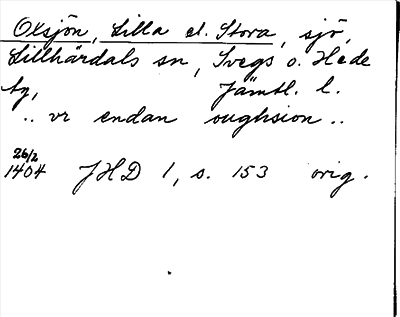 Oxsjön, Lilla el. Stora, sjö,
Lillhärdals sn, Svegs o. Hede
tg, Jämtl. l.
.. vr endan oughsion ..
26/2
1404 JHD 1, s. 153 orig.